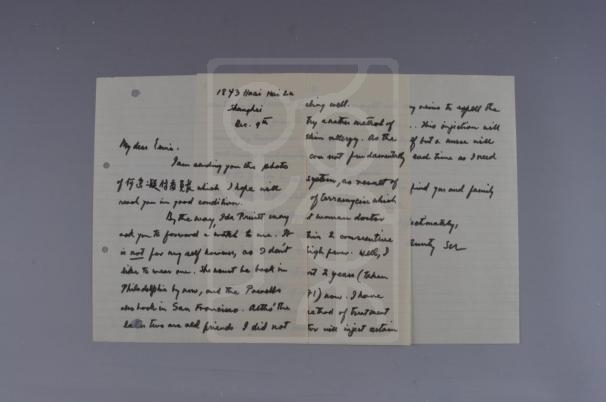 1843 Huai Hai Lu
Shanghai
Dec. 9th
My dear
I am sending you this photo
of 何香凝付委員長 which I hope will
reach you in good condition.
By the way, Ida Pruitt may
ask you to forward a watch to me. It
is not for myself however, as I don't
like to wear one. She must be back in
Philadelphia by now, and the Powells
also back in San Francisco. Altho' the
latter two are old friends I did not
ching well.
try another method of
skin allergy. As the
can not fundamentally
system, as result of
of terramycin which
t woman doctor
this 2 consecutive
high fever. Well, I
nt 2 years (taken
71) now. I have
method of treatment
tor will inject certain
my veins to expell the
. This injection will
f but a nurse will
each time as I need
find you and family
ctionately,